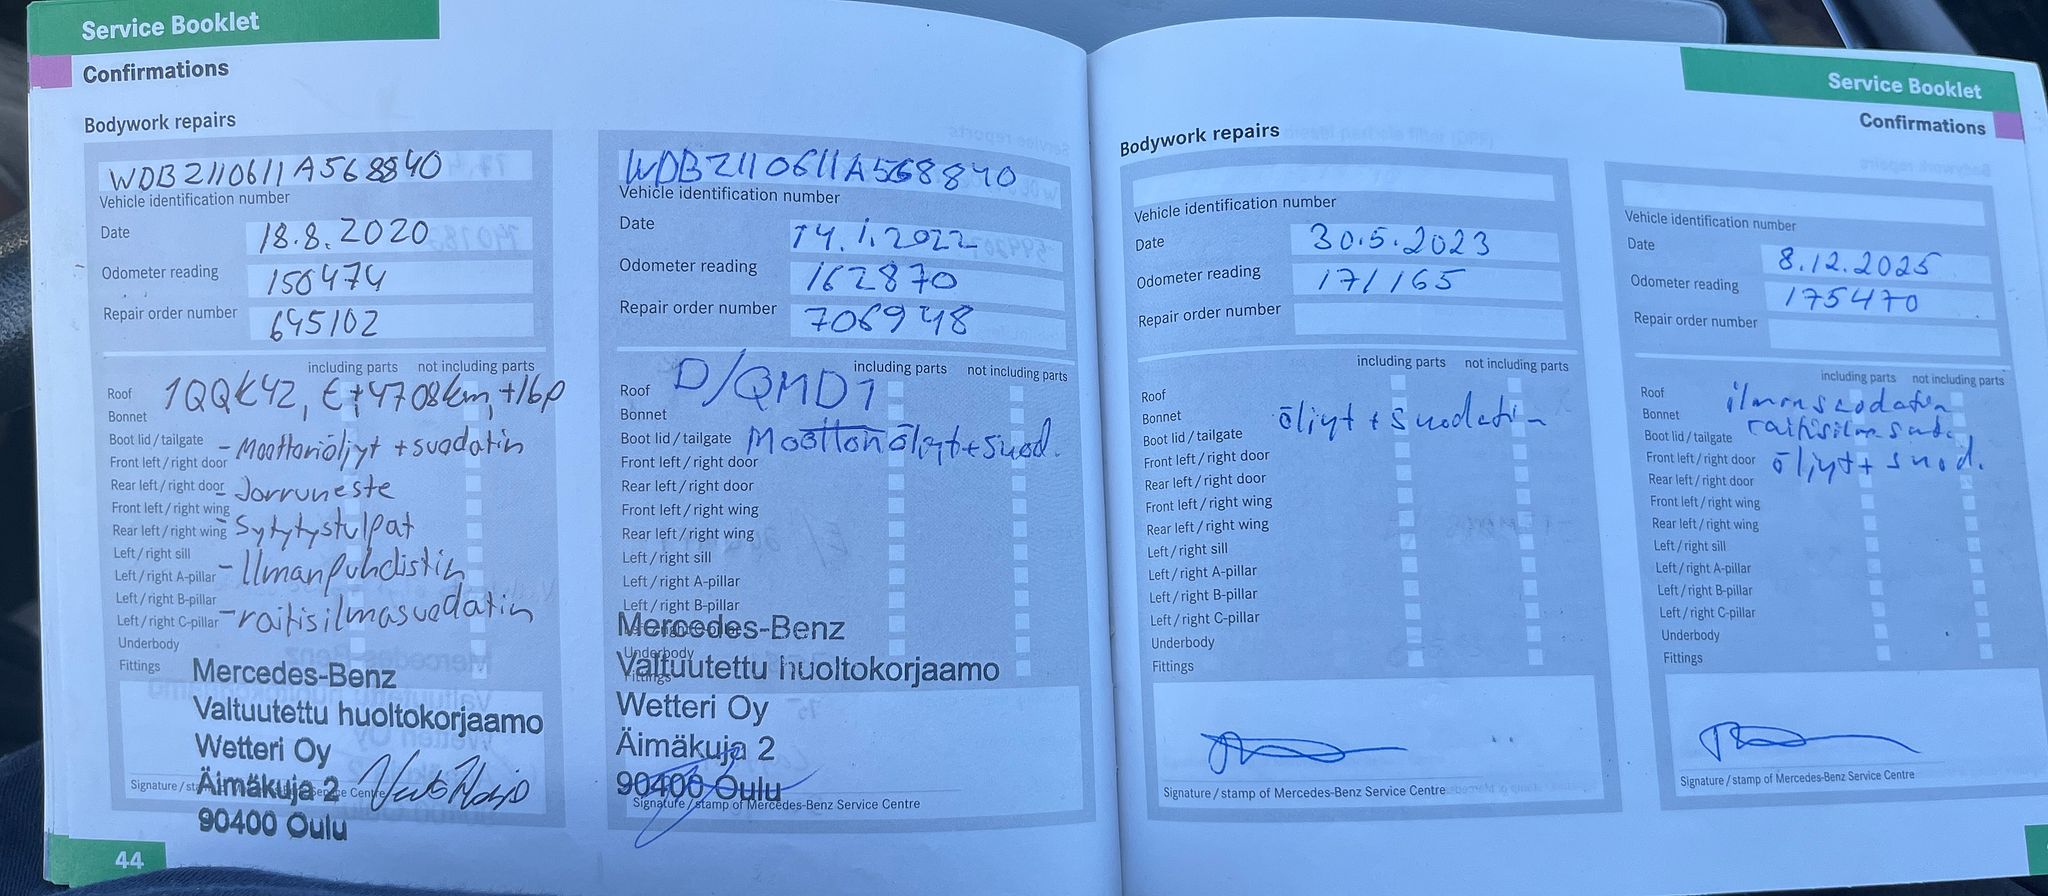 Service Booklet
Confirmations
Bodywork repairs
WDB2110611A568840
Vehicle identification number
Date 18.8.2020
Odometer reading 150474
Repair order number 645102
including parts not including parts
Roof 1QQK42, €+4708km, +16p
Bonnet
Boot lid / tailgate - Moottoriöljyt + suodatin
Front left / right door
Rear left / right door - Jarruneste
Front left / right wing
Rear left / right wing - Sytytystulpat
Left / right sill
Left / right A-pillar - Ilmanpuhdistin
Left / right B-pillar
Left / right C-pillar - raitisilmasuodatin
Underbody
Fittings
Mercedes-Benz
Valtuutettu huoltokorjaamo
Wetteri Oy
Äimäkuja 2
90400 Oulu
Signature / stamp of Mercedes-Benz Service Centre
44
WDB2110611A568840
Vehicle identification number
Date 14.1.2022
Odometer reading 162870
Repair order number 706948
including parts not including parts
Roof D/QMD1
Bonnet
Boot lid / tailgate Moottoriöljyt + suod.
Front left / right door
Rear left / right door
Front left / right wing
Rear left / right wing
Left / right sill
Left / right A-pillar
Left / right B-pillar
Left / right C-pillar
Underbody
Fittings
Mercedes-Benz
Valtuutettu huoltokorjaamo
Wetteri Oy
Äimäkuja 2
90400 Oulu
Signature / stamp of Mercedes-Benz Service Centre
Service Booklet
Confirmations
Bodywork repairs
Vehicle identification number
Date 30.5.2023
Odometer reading 171165
Repair order number
including parts not including parts
Roof
Bonnet öljyt + suodatin
Boot lid / tailgate
Front left / right door
Rear left / right door
Front left / right wing
Rear left / right wing
Left / right sill
Left / right A-pillar
Left / right B-pillar
Left / right C-pillar
Underbody
Fittings
Signature / stamp of Mercedes-Benz Service Centre
Vehicle identification number
Date 8.12.2025
Odometer reading 175470
Repair order number
including parts not including parts
Roof ilmansuodatin
Bonnet
Boot lid / tailgate raitisilmasuod.
Front left / right door öljyt + suod.
Rear left / right door
Front left / right wing
Rear left / right wing
Left / right sill
Left / right A-pillar
Left / right B-pillar
Left / right C-pillar
Underbody
Fittings
Signature / stamp of Mercedes-Benz Service Centre